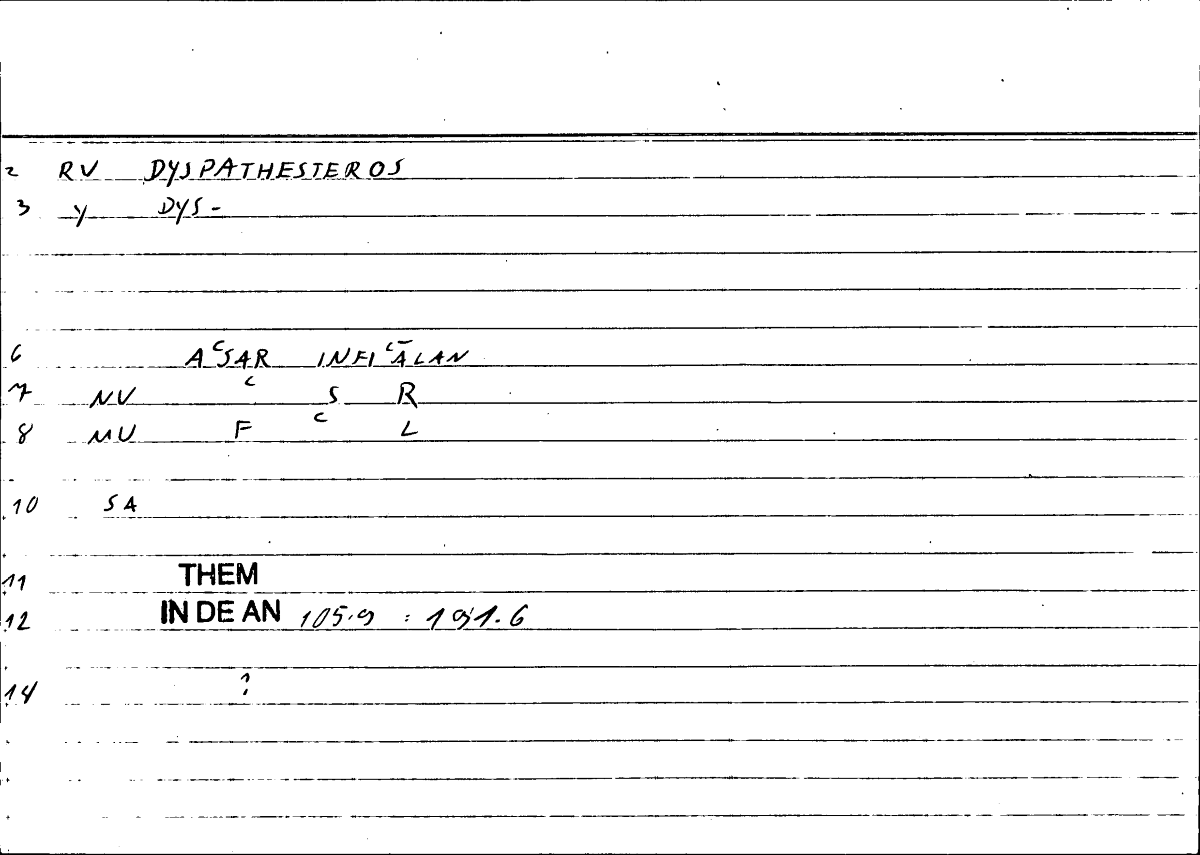 2 RV DYSPATHESTEROS
3 Y DYS-
6 AᶜSAR INFIᶜĀLAN
7 NV ᶜ S R
8 MU F ᶜ L
10 SA
11 THEM
12 IN DE AN 105.9 : 191.6
14 ?